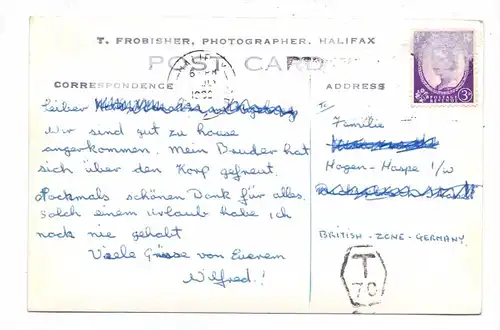 T. FROBISHER, PHOTOGRAPHER, HALIFAX
POST CARD
CORRESPONDENCE
ADDRESS
HALIF
3D
POSTAGE
Lieber
Wir sind gut zu house
angerkommen. Mein Bruder hat
sich über den Korp gefneut.
Nockmals schönen Dank für alles.
Solch einem Urlaub habe ich
nock nie gehabt
Viele Grüsse von Euerem
Wilfred!
To
Familie
Hagen-Haspe i/w
BRITISH-ZONE-GERMANY
T
70